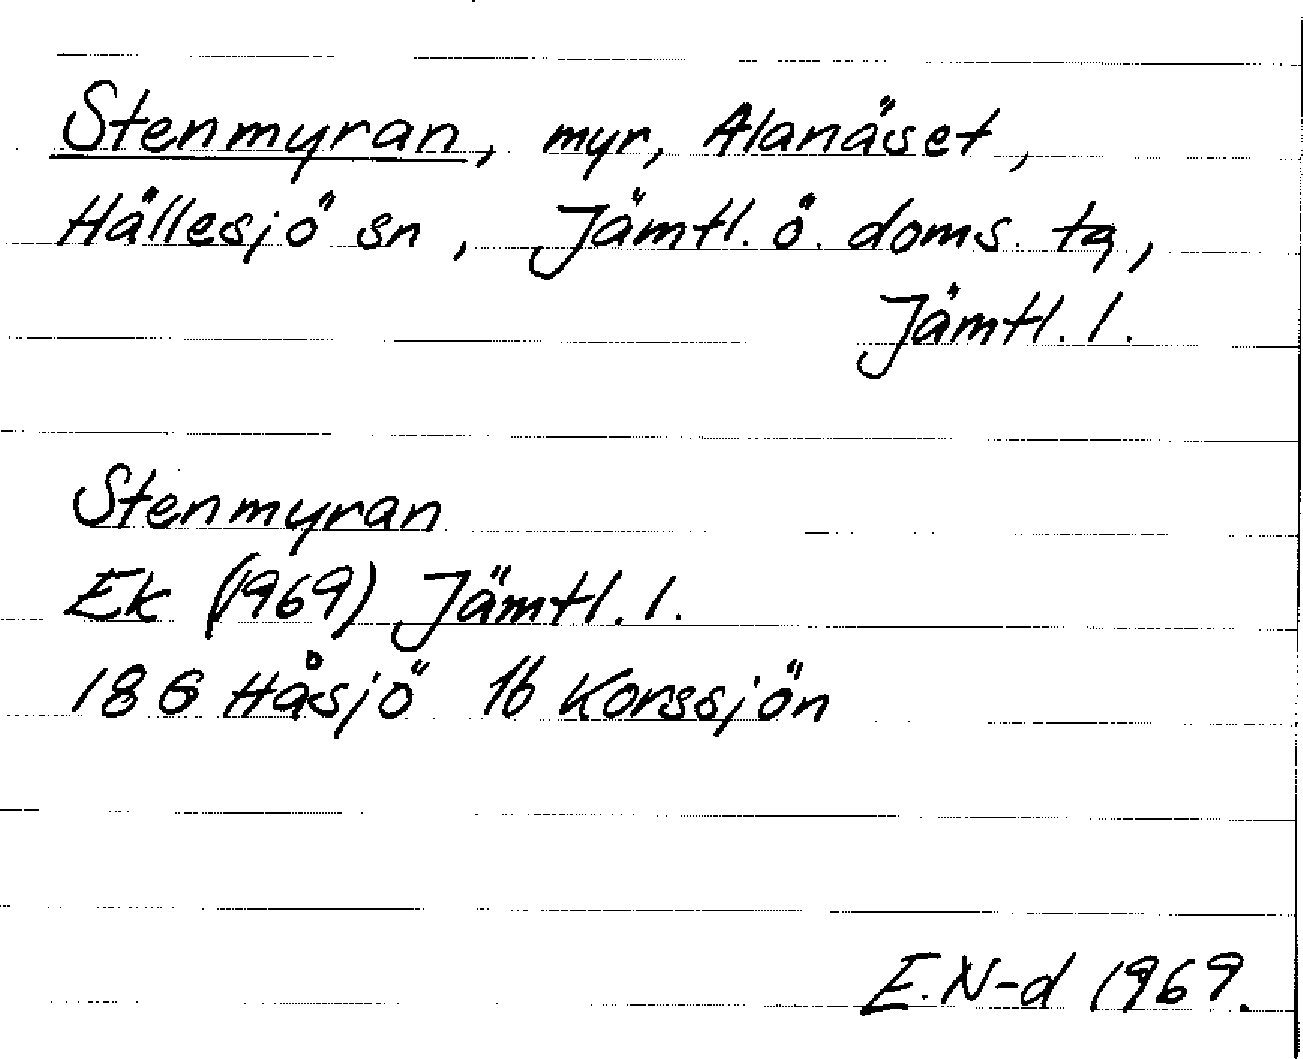 Stenmyran, myr, Alanäset,
Hällesjö sn, Jämtl. ö. doms. tg,
Jämtl. l.
Stenmyran
Ek (1969) Jämtl. l.
18G Håsjö 1b Korssjön
E.N-d 1969.